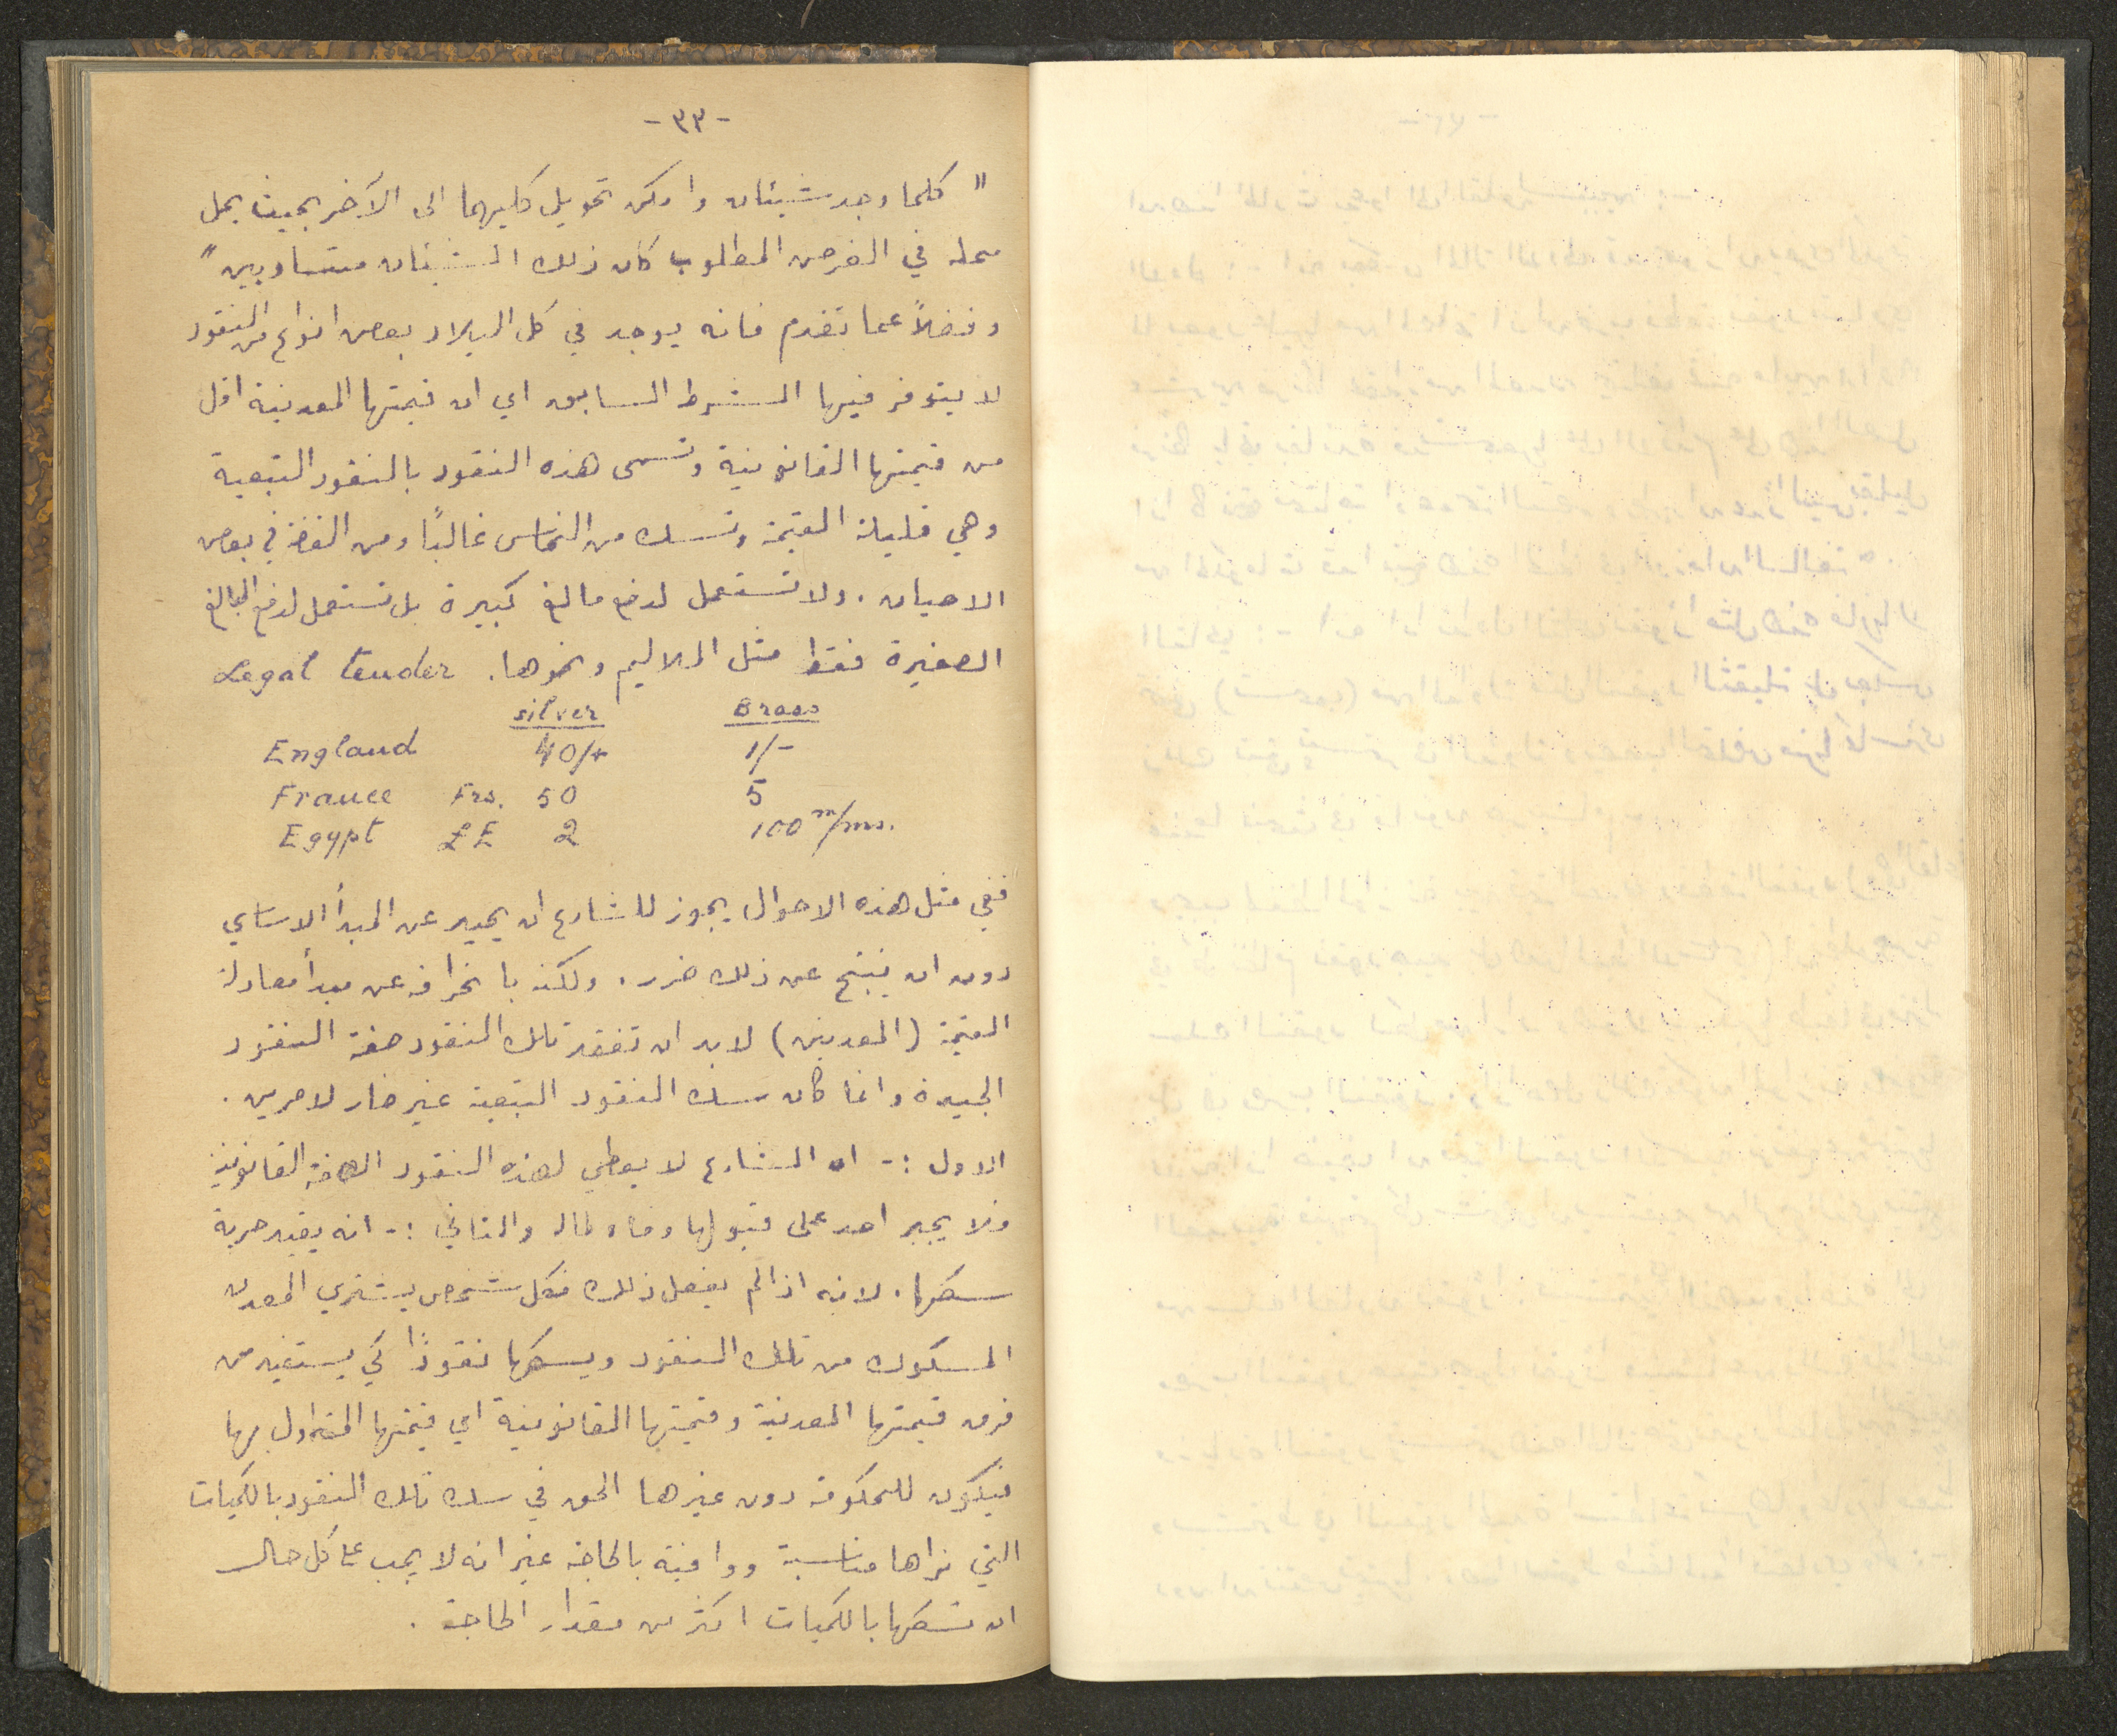 -٣٣-
"كلما وجد شيئان وامكن تحويل كليهما الى الآخر بحيث يحل
محله في الغرض المطلوب كان ذلك الشيئان متساويين"
وفضلاً عما تقدم فانه يوجد في كل البلاد بعض انواع من النقود
لا يتوفر فيها الشرط السابق اي ان قيمتها المعدنية اقل
من قيمتها القانونية وتسمى هذه النقود بالنقود التبعية
وهي قليلة القيمة وتسك من النحاس غالبًا ومن الفضة في بعض
الاحيان. ولا تستعمل لدفع مبالغ كبيرة بل تستعمل لدفع المبالغ
الصغيرة فقط مثل الملاليم ونحوها. Legal tender
silver Brass
England 40/- 1/-
France Frs. 50 5
Egypt £E 2 100 m/ms.
ففي مثل هذه الاحوال يجوز للشارع ان يحيد عن المبدأ الاساسي
دون ان ينتج عن ذلك ضرر. ولكنه بانحرافه عن مبدأ معادلة
القيمة (المعدنين) لابد ان تفقد تلك النقود صفة النقود
الجيدة وانما كان سك النقود التبعية غير ضار لامرين.
الاول :- ان الشارع لا يعطي لهذه النقود الصفة القانونية
فلا يجبر احد على قبولها وفاء لماله والثاني :- انه يقيد حرية
سكها. لانه اذا لم يفعل ذلك فكل شخص يشتري المعدن
المسكوك من تلك النقود ويسكها نقودًا كي يستفيد من
فرق قيمتها المعدنية وقيمتها القانونية اي قيمتها المتداول بها
فيكون للحكومة دون غيرها الحق في سك تلك النقود بالكميات
التي تراها مناسبة ووافية بالحاجة غير انه لا يجب على كل حال
ان تسكها بالكميات اكثر من مقدار الحاجة.